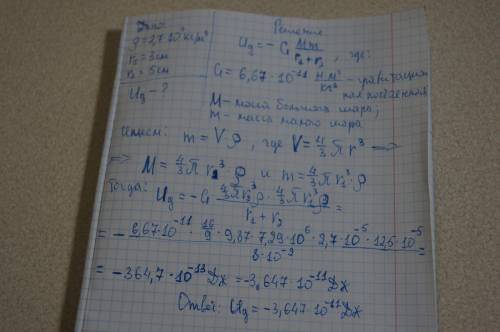 Дано:
ρ = 2,7·10³ кг/м³
r₁ = 3см
r₂ = 5см
U_g - ?
Решение
U_g = - G Mm / r₁ + r₂, где:
G = 6,67·10⁻¹¹ Н·м²/кг² - гравитацион
ная постоянная
M - масса большого шара;
m - масса малого шара
Имеем: m = Vρ, где V = 4/3 π r³ ⟹
⟹ M = 4/3 π r₂³ ρ и m = 4/3 π r₁³·ρ
Тогда: U_g = - G 4/3 π r₂³ρ · 4/3 π r₁³ρ / r₁ + r₂ =
= - 6,67·10⁻¹¹ · 16/9 · 9,87·7,29·10⁶ · 2,7·10⁻⁵ · 12,5·10⁻⁵ / 8·10⁻² =
= -364,7·10⁻¹³ Дж = -3,647·10⁻¹¹ Дж
Ответ: U_g = -3,647·10⁻¹¹ Дж